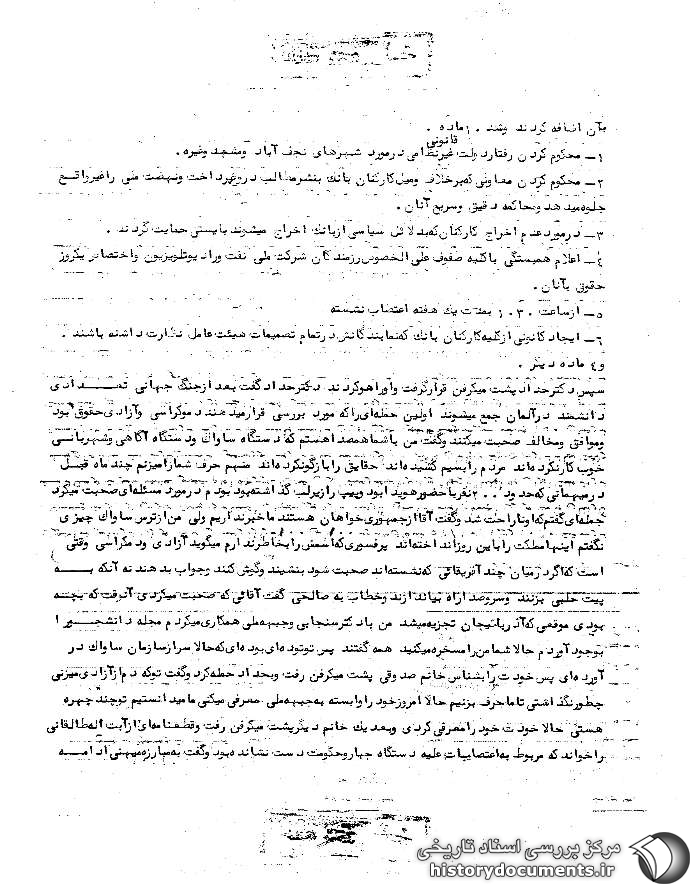 بآن اضافه کردند وشد ۱۰ماده .
۱ـ محکوم کردن رفتاردولت غیرنظامی درمورد شهرهای نجف آباد ومشهد وغیره .
قانونی
۲ـ محکوم کردن معاونی که برخلاف ومیل کارکنان بانک بنشرمطالب دروغپرداخت ونهضت ملی راغیرواقع
جلوه میدهد ومحاکمه دقیق وسریع آنان .
۳ـ درموردعدم اخراج کارکنان که بدلائل سیاسی ازبانک اخراج میشوند بایستی حمایت گردند .
٤ـ اعلام همبستگی باکلیه صفوف علی الخصوص رزمندگان شرکت ملی نفت ورادیوتلویزیون واختصاص یکروز
حقوق بآنان .
۵ـ ازساعت ۱۰۳۰ بمدت یک هفته اعتصاب نشسته
٦ـ ایجاد کانونی ازکلیه کارکنان بانک که نمایندگانش درتمام تصمیمات هیئت عامل نظارت داشته باشند .
و٤ ماده دیگر .
سپس دکترحداد پشت میکرفن قرارگرفت واوراهوکردند دکترحداد گفت بعد ازجنگ جهانی تعدادی
دانشمند درآلمان جمع میشوند اولین جمله‌ای راکه مورد بررسی قرارمیدهند دموکراسی وآزادی حقوق بود
وموافق ومخالف صحبت میکنند وگفت من باشماهمصداهستم که دستگاه ساواک ودستگاه آگاهی وشهربانی
خوب کارنکرده‌اند مردم رابسیم کشیده‌اند حقایق رابازگونکرده‌اند منهم حرف شمارامیزنم چند ماه قبل
درمیهمانی که حدود ۲۰۰ نفربا حضورهویدا بود وپیپ رازیرلب گذاشته بود بودم درمورد مسئله‌ای صحبت میکرد
جمله‌ای گفتم که اوناراحت شد وگفت آقا ازجمهوری خواهان هستند ماخبرنداریم ولی من ازترس ساواک چیزی
نگفتم اینهامملکت رابه این روزانداخته‌اند پرفسوری که اسمش رابخاطرندارم میگوید آزادی ودمکراسی وقتی
است که اگردرمیان چند آفریقائی که نشسته‌اند صحبت شود بنشیند وگوش کنند وجواب بدهند نه آنکه به
پیت حلبی بزنند وسروصداراه بیاندازند وخطاب به صالحی گفت آقائی که صحبت میکردی آنوقت که بچه
بودی موقعی که آذربایجان تجزیه میشد من بادکترسنجابی وجبهه ملی همکاری میکردم مجله دانشجورا
بوجود آوردم حالا شمامن رامسخره میکنید همه گفتند پس توتوده‌ای بوده‌ای که حالا سرازسازمان ساواک در
آورده‌ای پس خودت رابشناس خانم صدوقی پشت میکرفن رفت وبحداد حمله کرد وگفت توکه دم ازآزادی میزنی
چطورنگذاشتی تاماحرف بزنیم حالا امروزخود راوابسته به جبهه ملی معرفی میکنی مامیدانستیم توچند چهره
هستی حالا خودت خود رامعرفی کردی وبعد یک خانم دیگرپشت میکرفن رفت وقطعنامه‌ای ازآیت اله طالقانی
راخواند که مربوط به اعتصابات علیه دستگاه جباروحکومت دست نشانده بود وگفت به مبارزه میهنی ادامه
مرکز بررسی اسناد تاریخی
historydocuments.ir